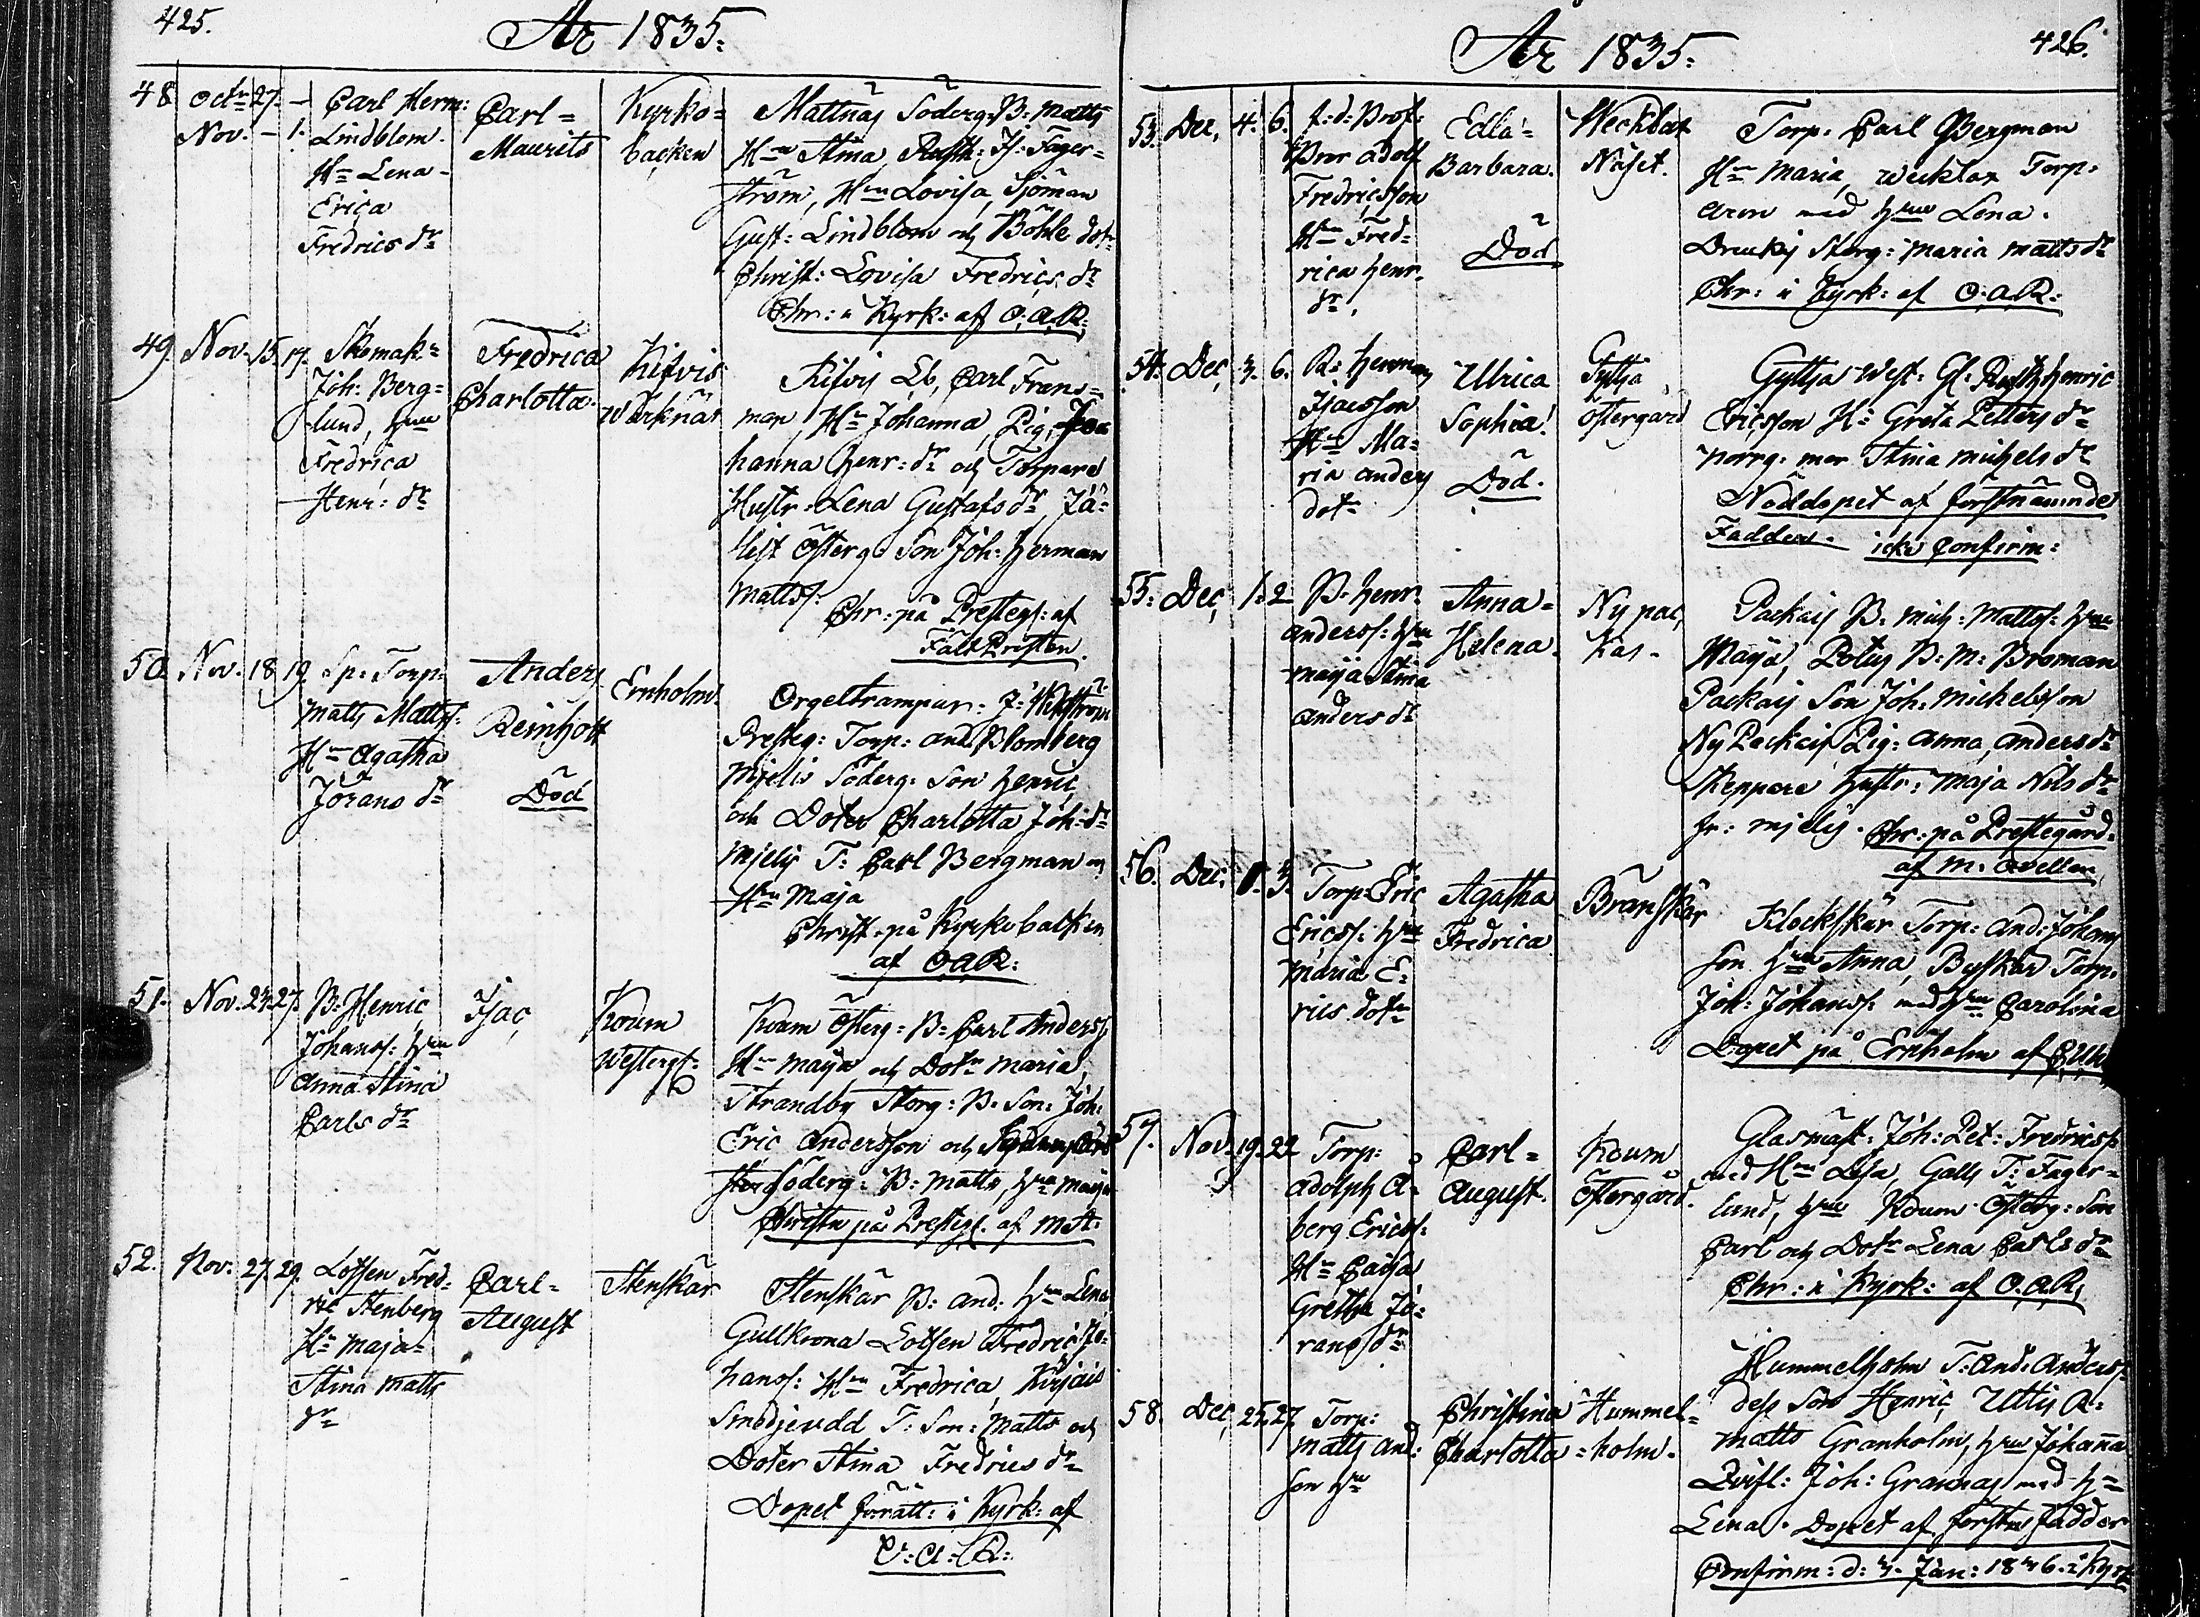 425.
År 1835.
48
Octr 27. –
Nov. – 1.
Carl Herm:
Lindblom.
Hu Lena
Erica
Fredrics dr
Carl =
Maurits
Kyrko=
backen
Mattnäs Söderg: B: Matts
Hu Stina, Rusth: Is: Fager=
ström, Hu Lovisa, Sjöman
Gust: Lindblom och Böhle dotr
Christ: Lovisa Fredrics dr
Chr: i Kyrk: af O.A.R.
49.
Nov. 15. 17.
Skomak=
Joh: Berg=
lund, hu
Fredrica
Henr: dr
Fredrica
Charlotta.
Kifvis
Carl Frans=
man, Hu Johanna, Pig: Jo
hanna Henr: dr och Torpare
Hustr. Lena Gustafs dr,
Österg: Son Joh: Herman
Mattss:
Chr: på Presteg: af
50.
Nov. 18 19
Torp:
Matts Matts:
Hu Agatha
Jörans dr
Anders
Reinhold
Död
Ernholm.
Orgeltrampar: J:
Presteg: Torp: And: Blomberg
Mjelis Söderg: Son Henric
och Doter Charlotta Joh: dr
Mjelis T: Carl Bergman och
Hu Maja
Christ. på Kyrkobacken
af O.A.R:
51.
Nov. 24. 27.
B: Henric
Johans: hu
Anna Stina
Carls dr
Isac
Koum
Westerg:
Koum Österg: B: Carl Anderss
Hu Maja och Dotr Maria,
Strandby Storg: B: Son: Joh:
Eric Andersson och
Söderg: B: Matts, hu Maja
Christn på Presteg: af M.A:
52.
Nov. 27. 29.
Lotsen Fred=
ric Stenberg
Hu Maja=
Stina Matts
dr
Carl=
August
Stenskär
Stenskär B: And: hu Lena
Gullkrona Lotsen Fredric Jo=
hans: Hu Fredrica, Kirjais
Smedjeudd T: Son: Matts och
Doter Stina Fredrics dr
Dopet förrätt: i Kyrk: af
O: A: R:
År 1835.
426.
53.
Dec, 4. 6.
f. d. Prof:
Adolf
Fredricsson
Hu Fred=
rica Henr.
dr.
Edla=
Barbara.
Död.
Näset.
Torp: Carl Bergman
Hu Maria, Torp:
med hu Lena.
Storg: Maria Matts dr
Chr: i Kyrk: af O.A.R:
54.
Dec, 3. 6.
R: Herman
Isacsson
Hu Ma=
ria Anders
dotr
Ulrica
Sophia.
Död.
Gyttja
Östergård
Gyttja West. Gl: Rusth Henric
Ericsson Hu Greta Petters dr
Norrg: mor Stina Michels dr
Nöddopet af förstnämnde
Fadder. icke Confirm:
55.
Dec, 1. 2
B. Henr:
Anderss: hu
Maja Stina
Anders dr
Anna=
Helena.
Ny pac,
kas -
Packais B. Mich: Mattss: hu
Maja, Potus B: M: Broman
Packais Son Joh: Michelsson
Ny Packais Pig: Anna Anders dr
Skeppare Hustr: Maja Nils dr
fr: Mjelis. Chr: på Prestegård.
af M. Avellan
56.
Dec. 3.
Torp: Eric
Ericss: hu
Maria E=
rics dotr
Agatha
Fredrica
Bränskär
Klockskär Torp: And: Johans
son hu Anna, Byskär Torp.
Joh: Johanss: med hu Carolina
Dopet på Ernholm af
57.
Nov. 19. 22
Torp:
Adolph A=
berg Ericss:
Hu Cajsa
Greta Jö=
rans dr
Carl=
August.
Koum
Östergård.
Glasmäst: Joh: Pet: Fredricss:
med Hu Lisa, Galts T: Fager=
lund, hu Koum Österg: Son
Carl och Dotr Lena Carls dr
Chr: i Kyrk: af O.A.R.
58.
Dec, 25. 27.
Torp:
Matts And:
son hu
Christina
Charlotta
Hummel=
holm.
Hummelholm T: And: Anderss:
dess Son Henric, Uttis R:
Matts Granholm, hu Johanna
Joh: Grannas med h
Lena. Dopet af förstn: fadder
Confirm: d: 3. Jan: 1836. i Kyrk